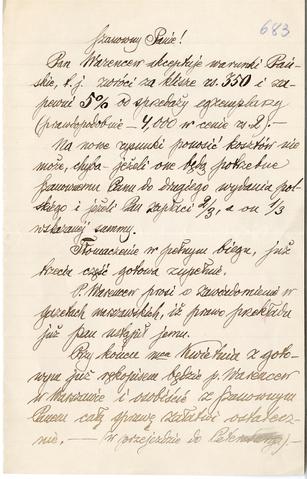 683
Szanowny Panie!
Pan Warencew akceptuje warunki Pań-
skie, t. j. zwróci za klisze rs. 350 i za-
pewni 5% od sprzedaży egzemplarzy
(prawdopodobnie – 4,000 w cenie rs. 2). –
Na nowe rysunki ponosić kosztów nie
może, chyba – jeżeli one będą potrzebne
Szanownemu Panu do drugiego wydania pol-
skiego i jeżeli Pan zapłaci 2/3, a on 1/3
wskazanej summy.
Tłomaczenie w pełnym biegu, już
trzecia część gotowa zupełnie.
P. Warencew prosi o zawiadomienie w
gazetach warszawskich, iż prawo przekładu
już Pan ustąpił jemu.
Przy końcu mca Kwietnia z goto-
wym już rękopisem będzie p. Warencew
w Warszawie i osobiście z Szanownym
Panem całą sprawę załatwi ostatecz-
nie, – (w przejeździe do Petersburga) –